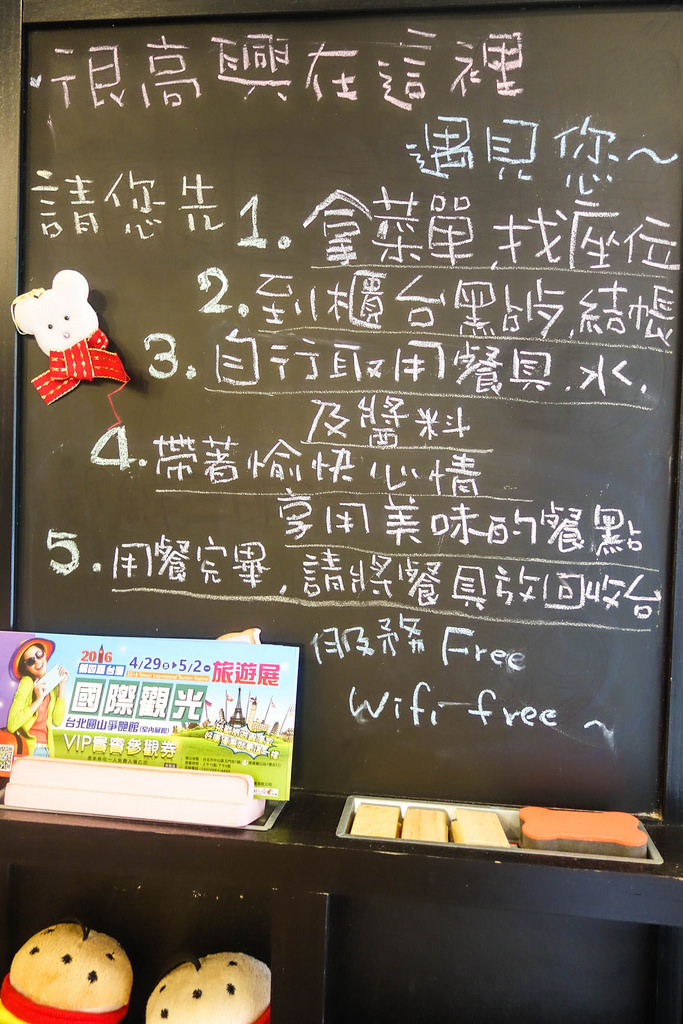 很高興在這裡
遇見您~
請您先 1. 拿菜單,找座位
2. 到櫃台點餐,結帳
3. 自行取用餐具.水.
及醬料
4. 帶著愉快心情
享用美味的餐點
5. 用餐完畢,請將餐具放回收台
服務 Free
Wifi-free ~
2016 4/29㊎▶5/2㊀ 旅遊展
第四屆 台灣
國際觀光
台北圓山爭艷館
VIP貴賓參觀券